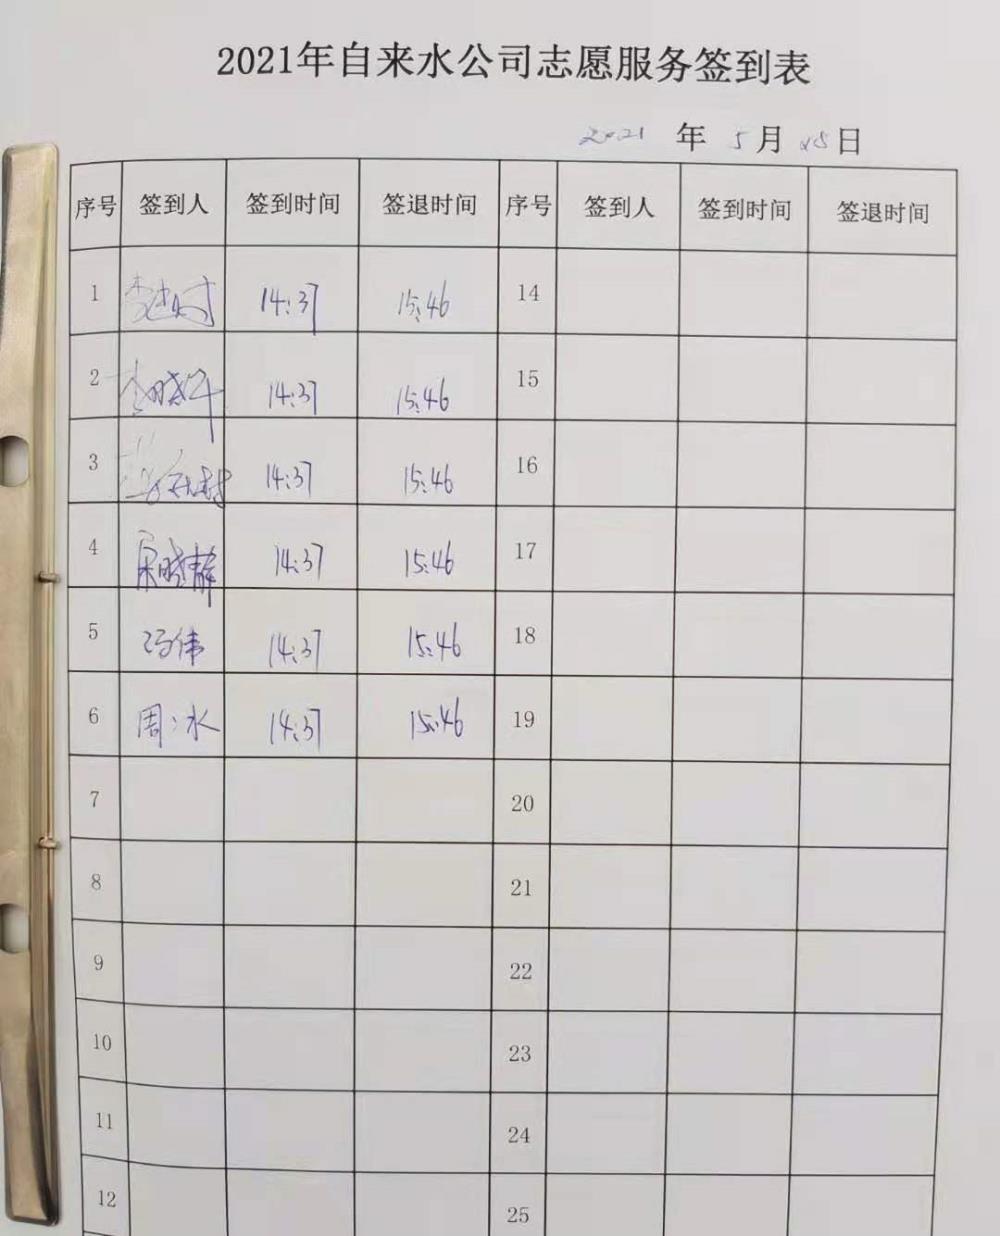 2021年自来水公司志愿服务签到表
2021 年 5 月 28 日
序号 签到人 签到时间 签退时间 序号 签到人 签到时间 签退时间
1 14:37 15:46 14
2 14:37 15:46 15
3 14:37 15:46 16
4 宋晓静 14:37 15:46 17
5 冯伟 14:37 15:46 18
6 周冰 14:37 15:46 19
7 20
8 21
9 22
10 23
11 24
12 25